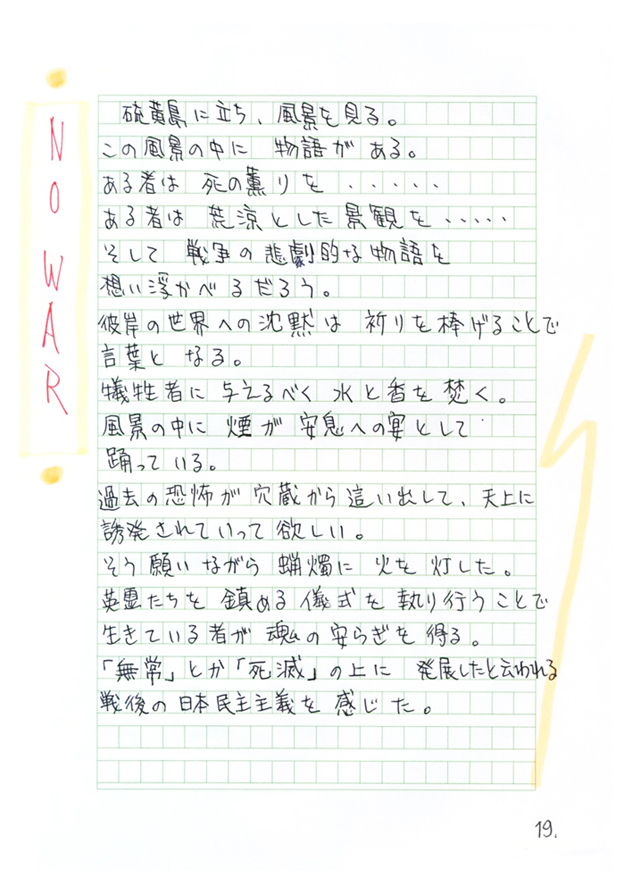 NO WAR
硫黄島に立ち、風景を見る。
この風景の中に 物語が ある。
ある者は 死の薫りを ・・・・・
ある者は 荒涼とした 景観を・・・・・
そして 戦争の悲劇的な物語を
想い浮かべるだろう。
彼岸の世界への沈黙は 祈りを棒げることで
言葉と なる。
犠牲者に 与えるべく 水と香を 焚く。
風景の中に 煙が 安息への宴として
踊って いる。
過去の恐怖が 穴蔵から 這い出して、天上に
誘発されていって 欲しい。
そう 願い ながら 蝋燭に 火を 灯した。
英霊たちを 鎮める 儀式を 執り行うことで
生きている者が 魂の安らぎを 得る。
「無常」とか「死滅」の上に 発展したと云われる
戦後の日本民主主義を 感じた。
19.